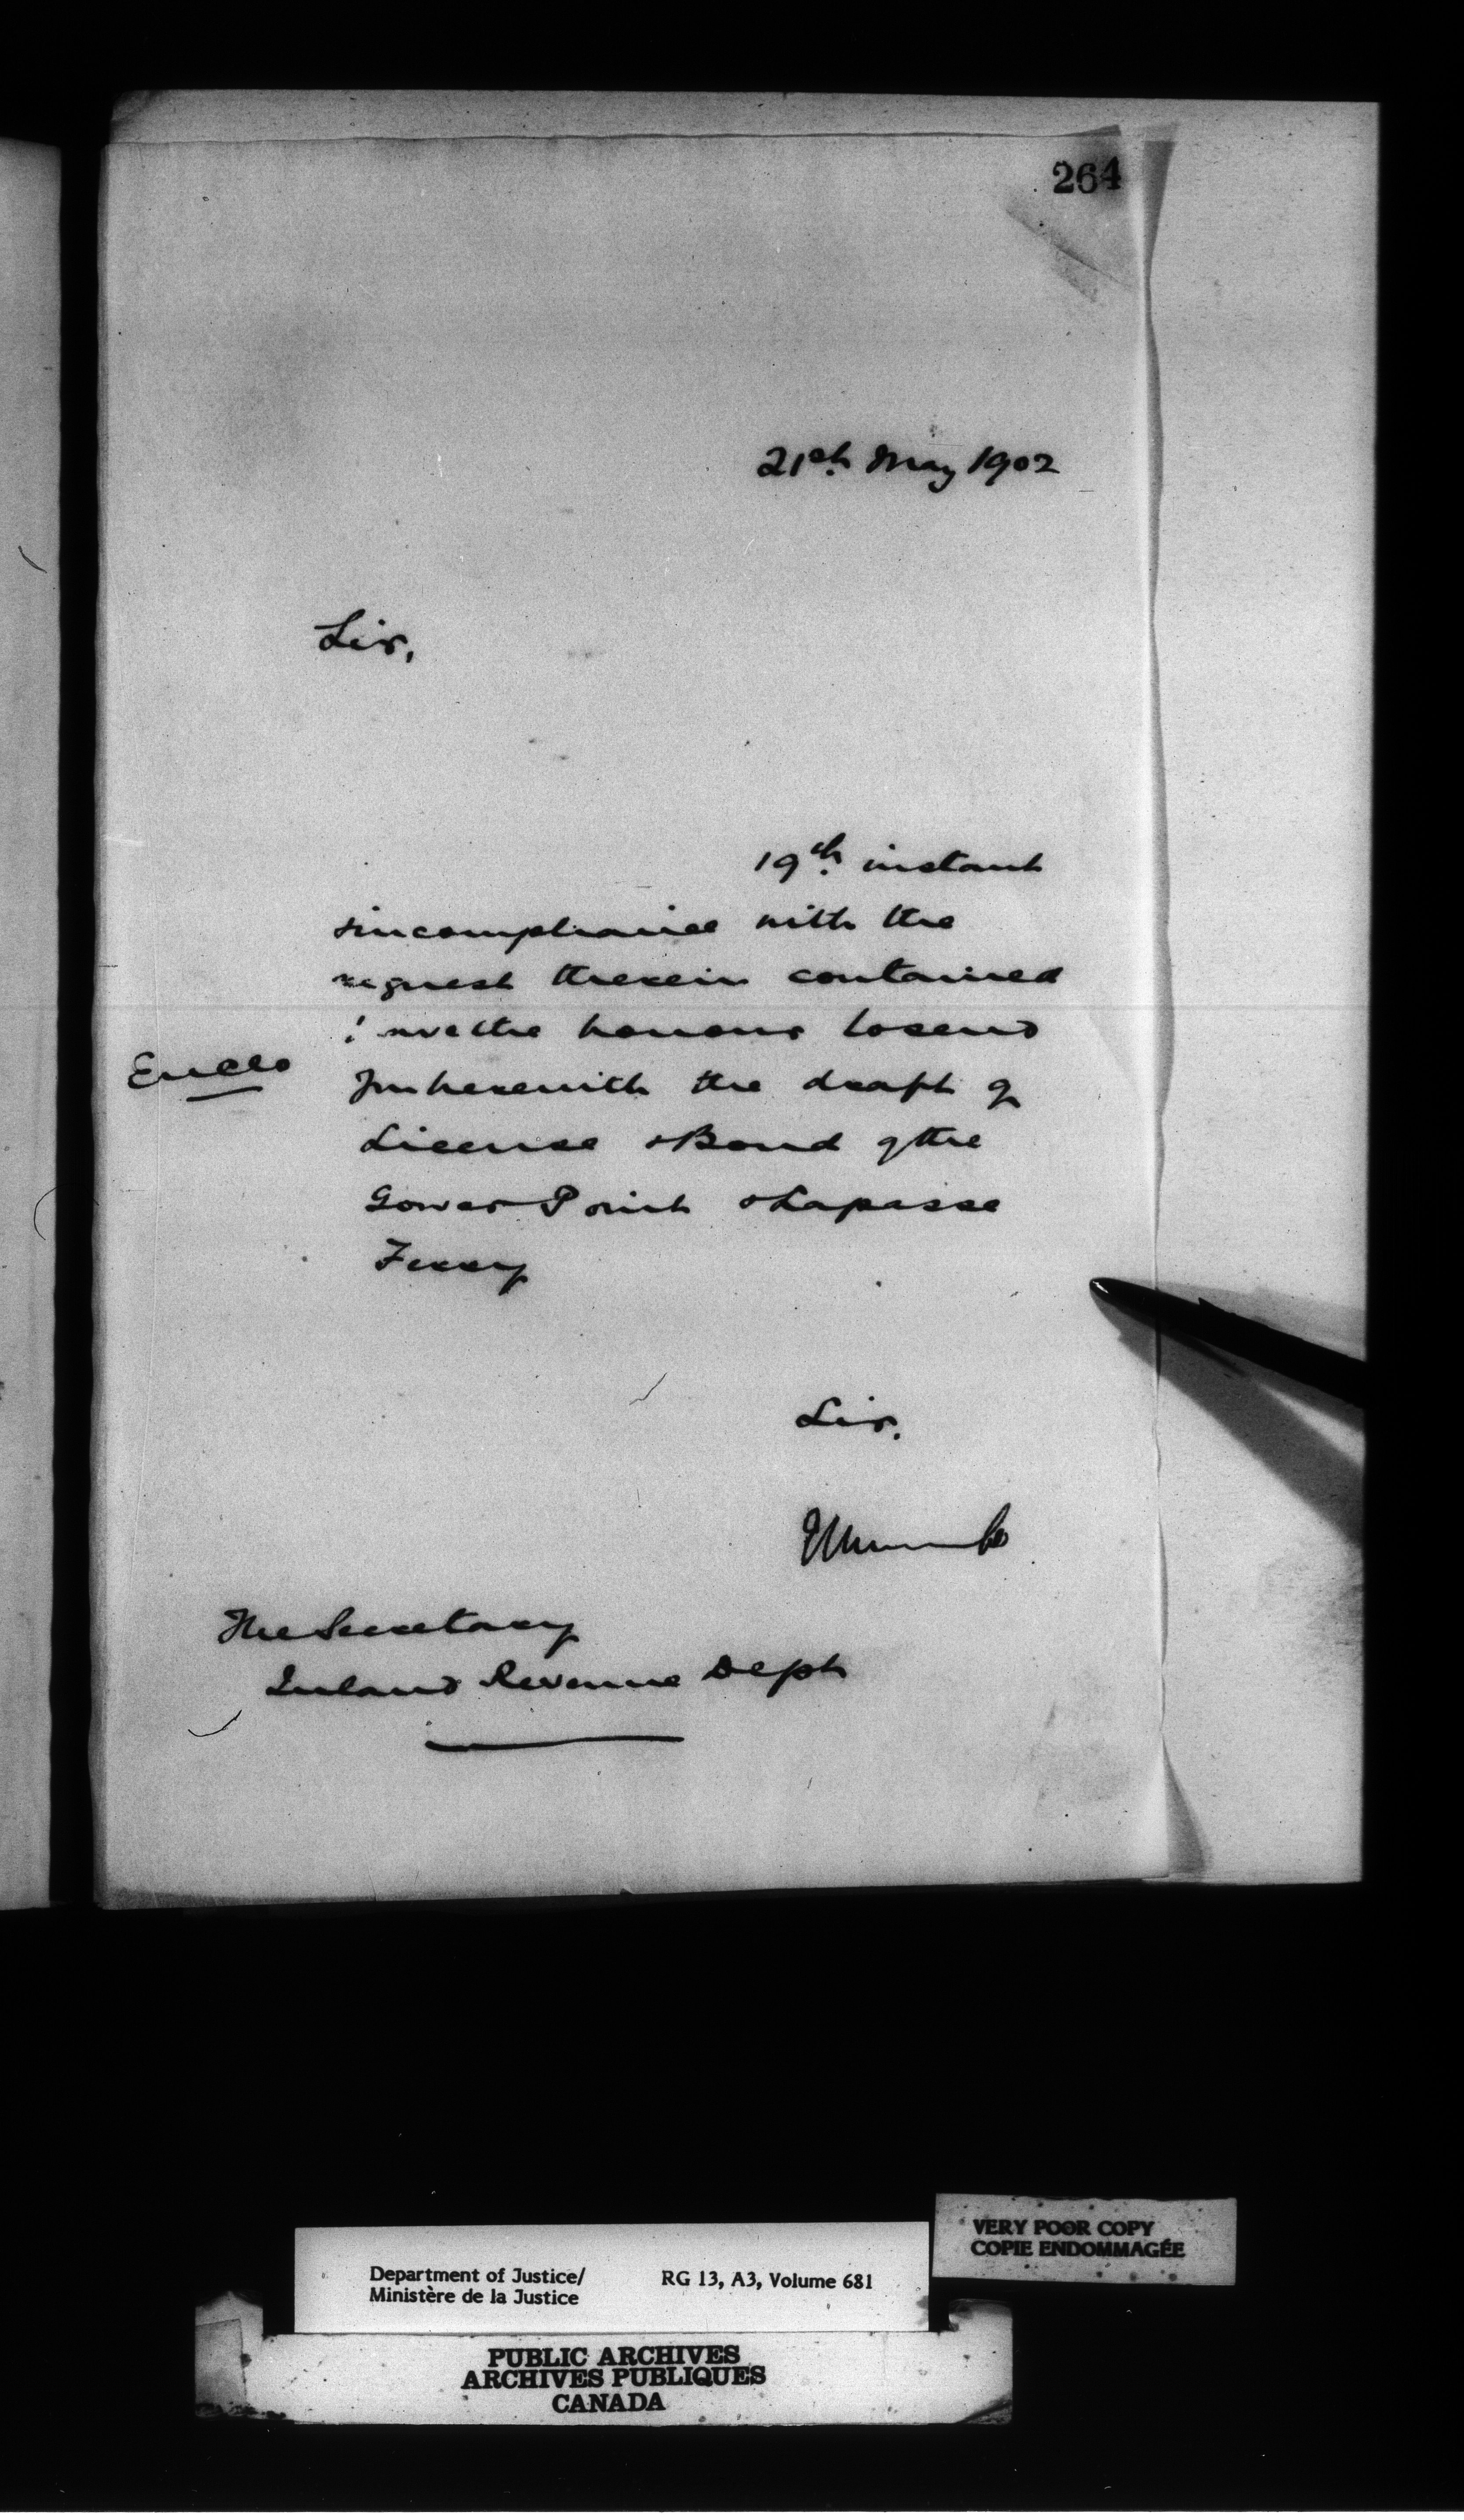 264
21st. May 1902
Sir,
19th. instant
& in compliance with the
request therein contained
I have the honour to send
Enclo
you herewith the draft of
License & Bond of the
Gower Point & Lapasse
Ferry
Sir.
The Secretary
Inland Revenue Dept
VERY POOR COPY
COPIE ENDOMMAGÉE
Department of Justice/
Ministère de la Justice
RG 13, A3, Volume 681
PUBLIC ARCHIVES
ARCHIVES PUBLIQUES
CANADA